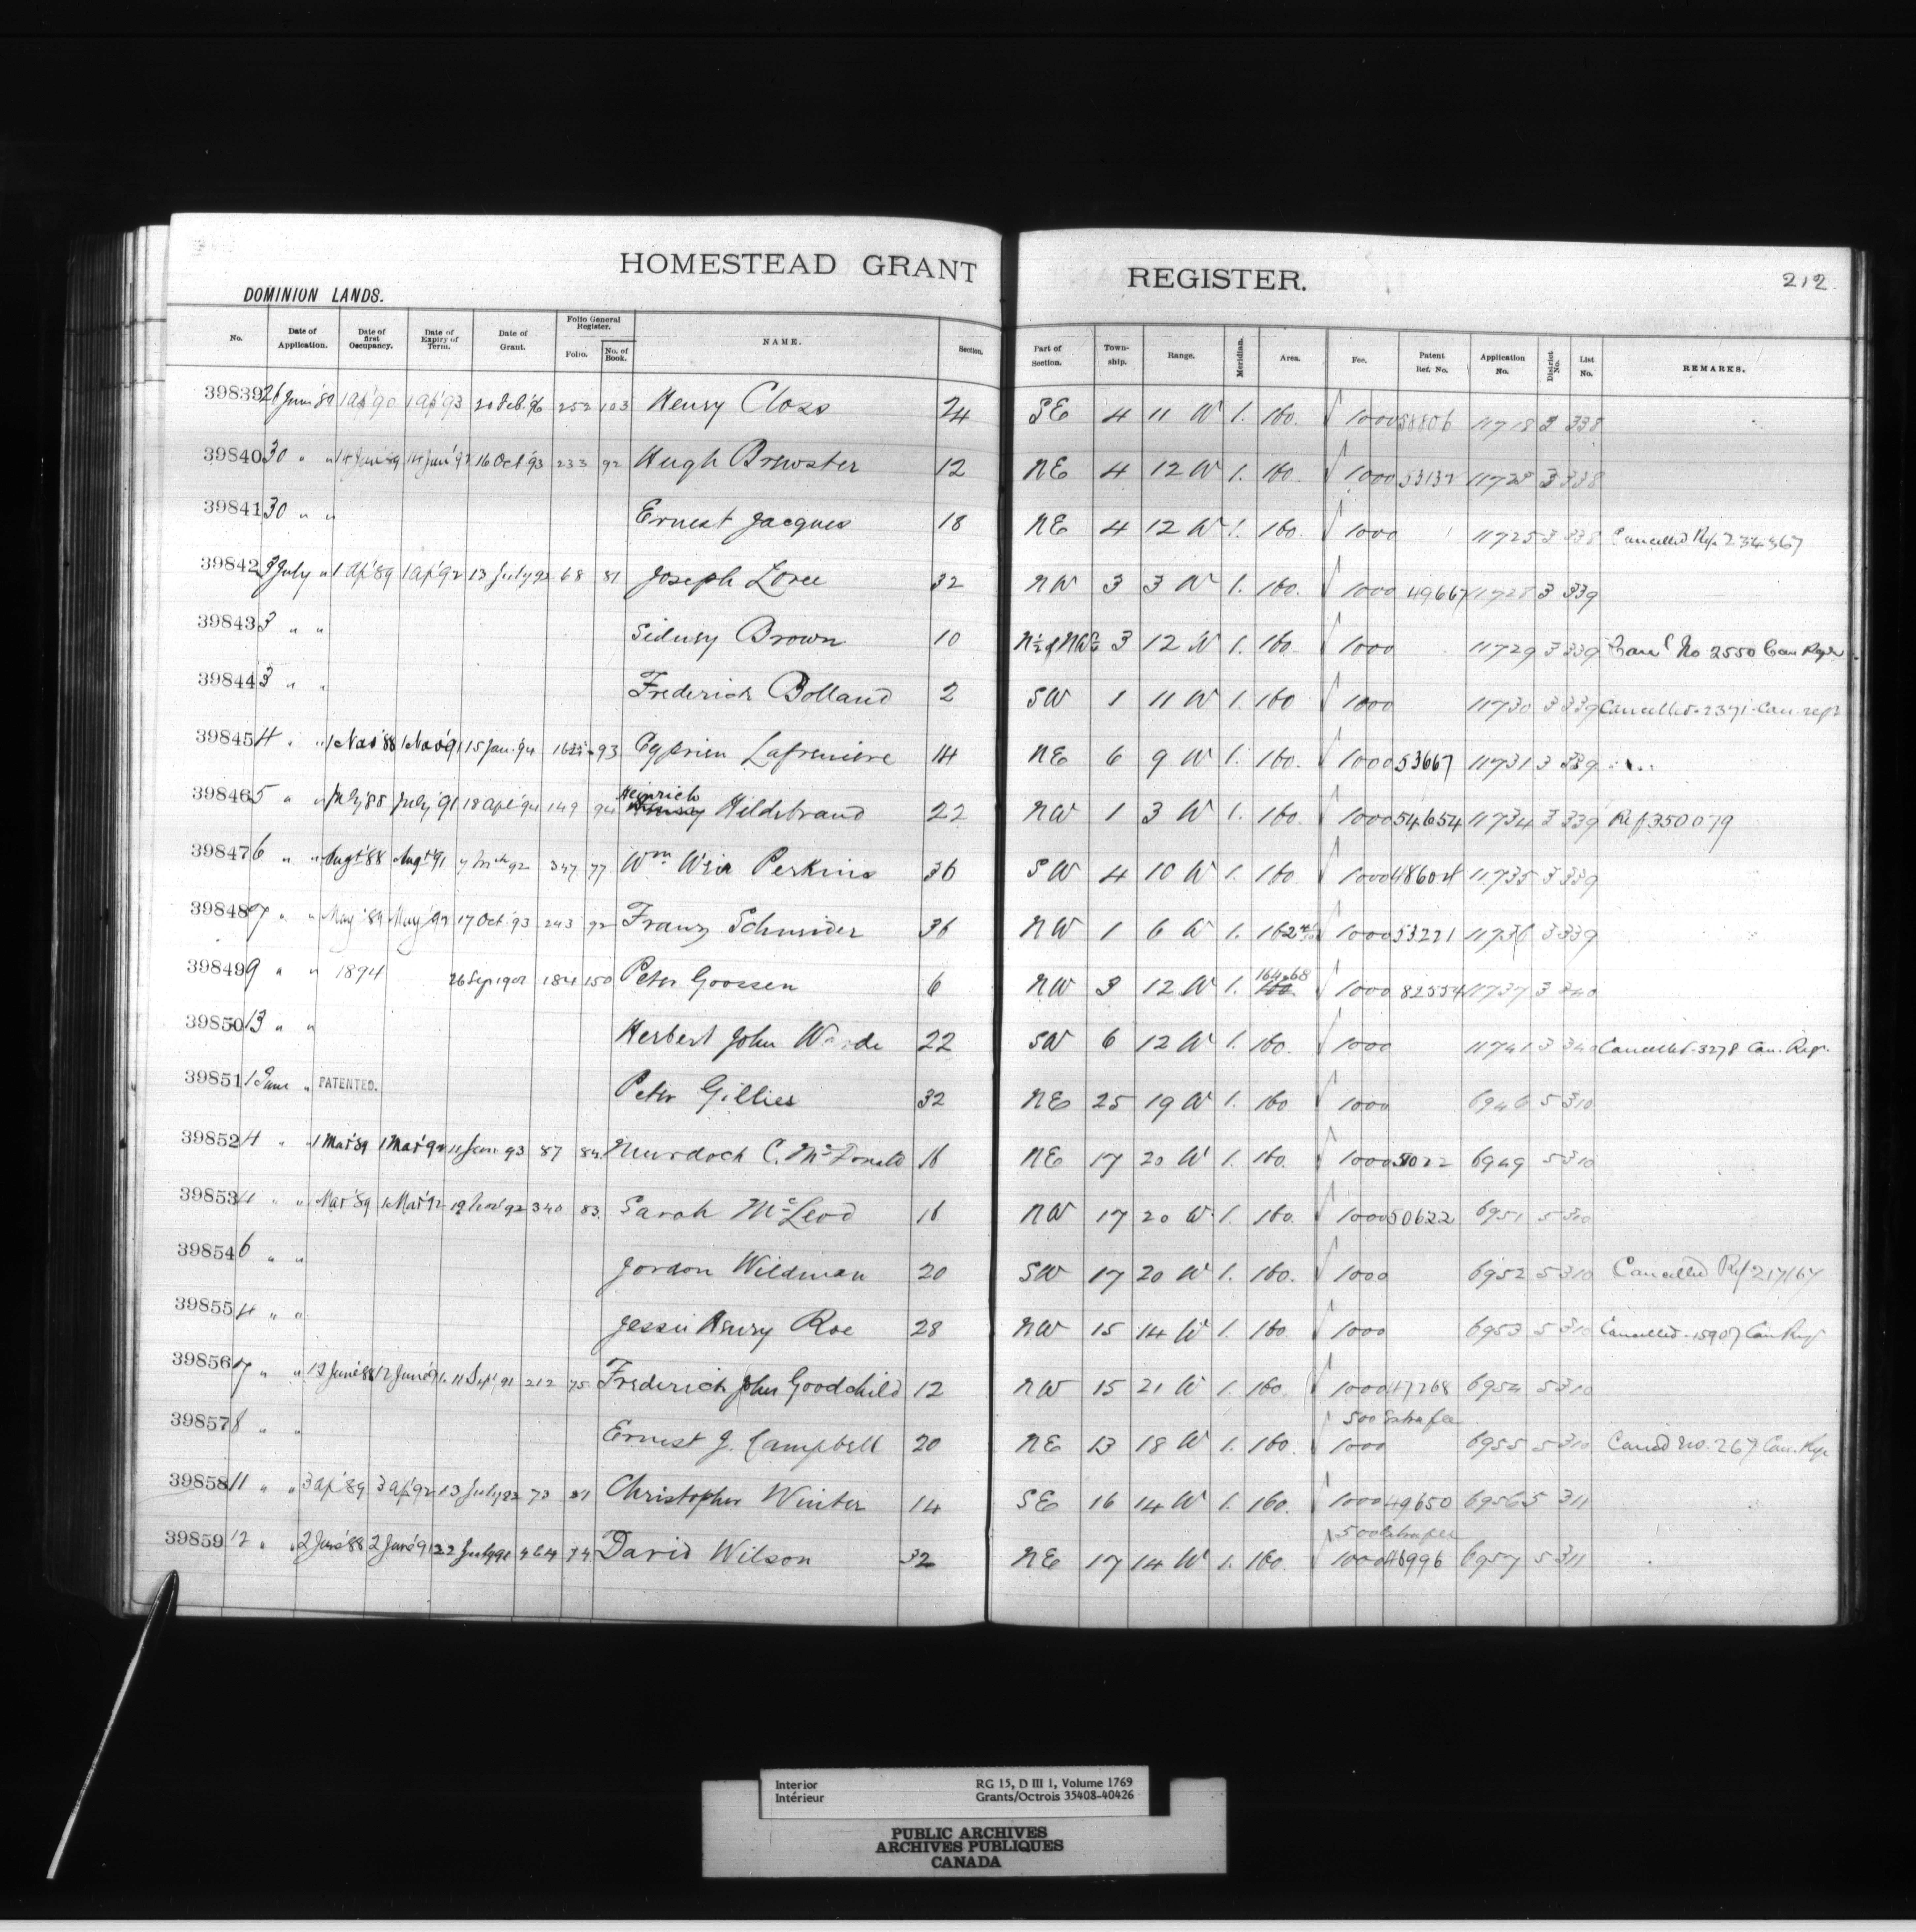 HOMESTEAD GRANT REGISTER. 212
DOMINION LANDS.
No. Date of Application. Date of first Occupancy. Date of Expiry of Term. Date of Grant. Folio General Register. Folio. No. of Book. NAME. Section. Part of Section. Township. Range. Meridian. Area. Fee. Patent Ref. No. Application No. District No. List No. REMARKS.
39839 26 June '89 1 Ap '90 1 Ap '93 20 Feb. 96 252 103 Henry Closs 24 SE 4 11 W 1. 160. 1000 58806 11718 3 338
39840 30 " " 14 Jun '89 14 Jun '92 16 Oct '93 233 92 Hugh Brewster 12 NE 4 12 W 1. 160. 1000 53132 11723 3 338
39841 30 " " Ernest Jacques 18 NE 4 12 W 1. 160. 1000 11725 3 338 Cancelled Ref. 234367
39842 3 July " 1 Ap '89 1 Ap '92 13 July 92 68 81 Joseph Loree 32 NW 3 3 W 1. 160. 1000 49667 11728 3 339
39843 3 " " Sidney Brown 10 N½ of NW¼ 3 12 W 1. 160. 1000 11729 3 339 No 2550 Can Regr
39844 3 " " Frederick Bolland 2 SW 1 11 W 1. 160 1000 11730 3 339 Cancelled 2371 Can. regr
39845 4 " " 1 Nov '88 1 Nov '91 15 Jan. '94 93 Cyprien Lafreniere 14 NE 6 9 W 1. 160. 1000 53667 11731 3 339
39846 5 " " July '88 July '91 18 Apl '94 149 94 Heinrich Hildebrand 22 NW 1 3 W 1. 160. 1000 54654 11734 3 339 Ref 350079
39847 6 " " Augt '88 Augt '91 7 Mch 92 347 77 Wm Weir Perkins 36 SW 4 10 W 1. 160. 1000 48604 11735 3 339
39848 7 " " May '89 May '92 17 Oct '93 243 92 Franz Schneider 36 NW 1 6 W 1. 162 1000 53221 11736 3 339
39849 9 " " 1894 26 Sep 1901 184 150 Peter Goossen 6 NW 3 12 W 1. 164.68 160 1000 82554 11737 3 340
39850 13 " " Herbert John Warde 22 SW 6 12 W 1. 160. 1000 11741 3 340 Cancelled 3278 Can. Regr.
39851 1 June " PATENTED. Peter Gillies 32 NE 25 19 W 1. 160 1000 6946 5 310
39852 4 " " 1 Mar '89 1 Mar '92 11 Jan 93 87 84 Murdock C. McDonald 16 NE 17 20 W 1. 160. 1000 6949 5 310
39853 4 " " Mar '89 Mar '92 19 Nov 92 340 83. Sarah McLeod 16 NW 17 20 W. 1. 160. 1000 50622 6951 5 310
39854 6 " " Gordon Wildman 20 SW 17 20 W 1. 160. 1000 6952 5 310 Cancelled Ref 217167
39855 4 " " Jessie Henry Roe 28 NW 15 14 W 1. 160. 1000 6953 5 310 Cancelled 15907 Can Regr
39856 7 " " 12 June '88 12 June '91 11 Sept 91 212 75 Frederick John Goodchild 12 NW 15 21 W 1. 160. 1000 47268 6954 5 310
500 Extra fee
39857 8 " " Ernest J. Campbell 20 NE 13 18 W 1. 160. 1000 6955 5 310 Cancd no. 267 Can. Regr
39858 11 " " 3 Ap '89 3 Ap '92 13 July 92 73 81 Christopher Winter 14 SE 16 14 W 1. 160. 1000 49650 6956 5 311
500 Extra fee
39859 12 " " 2 June '88 2 June '91 22 July 91 464 74 David Wilson 32 NE 17 14 W 1. 160. 1000 46996 6957 5 311
Interior RG 15, D III 1, Volume 1769
Intérieur Grants/Octrois 35408-40426
PUBLIC ARCHIVES
ARCHIVES PUBLIQUES
CANADA